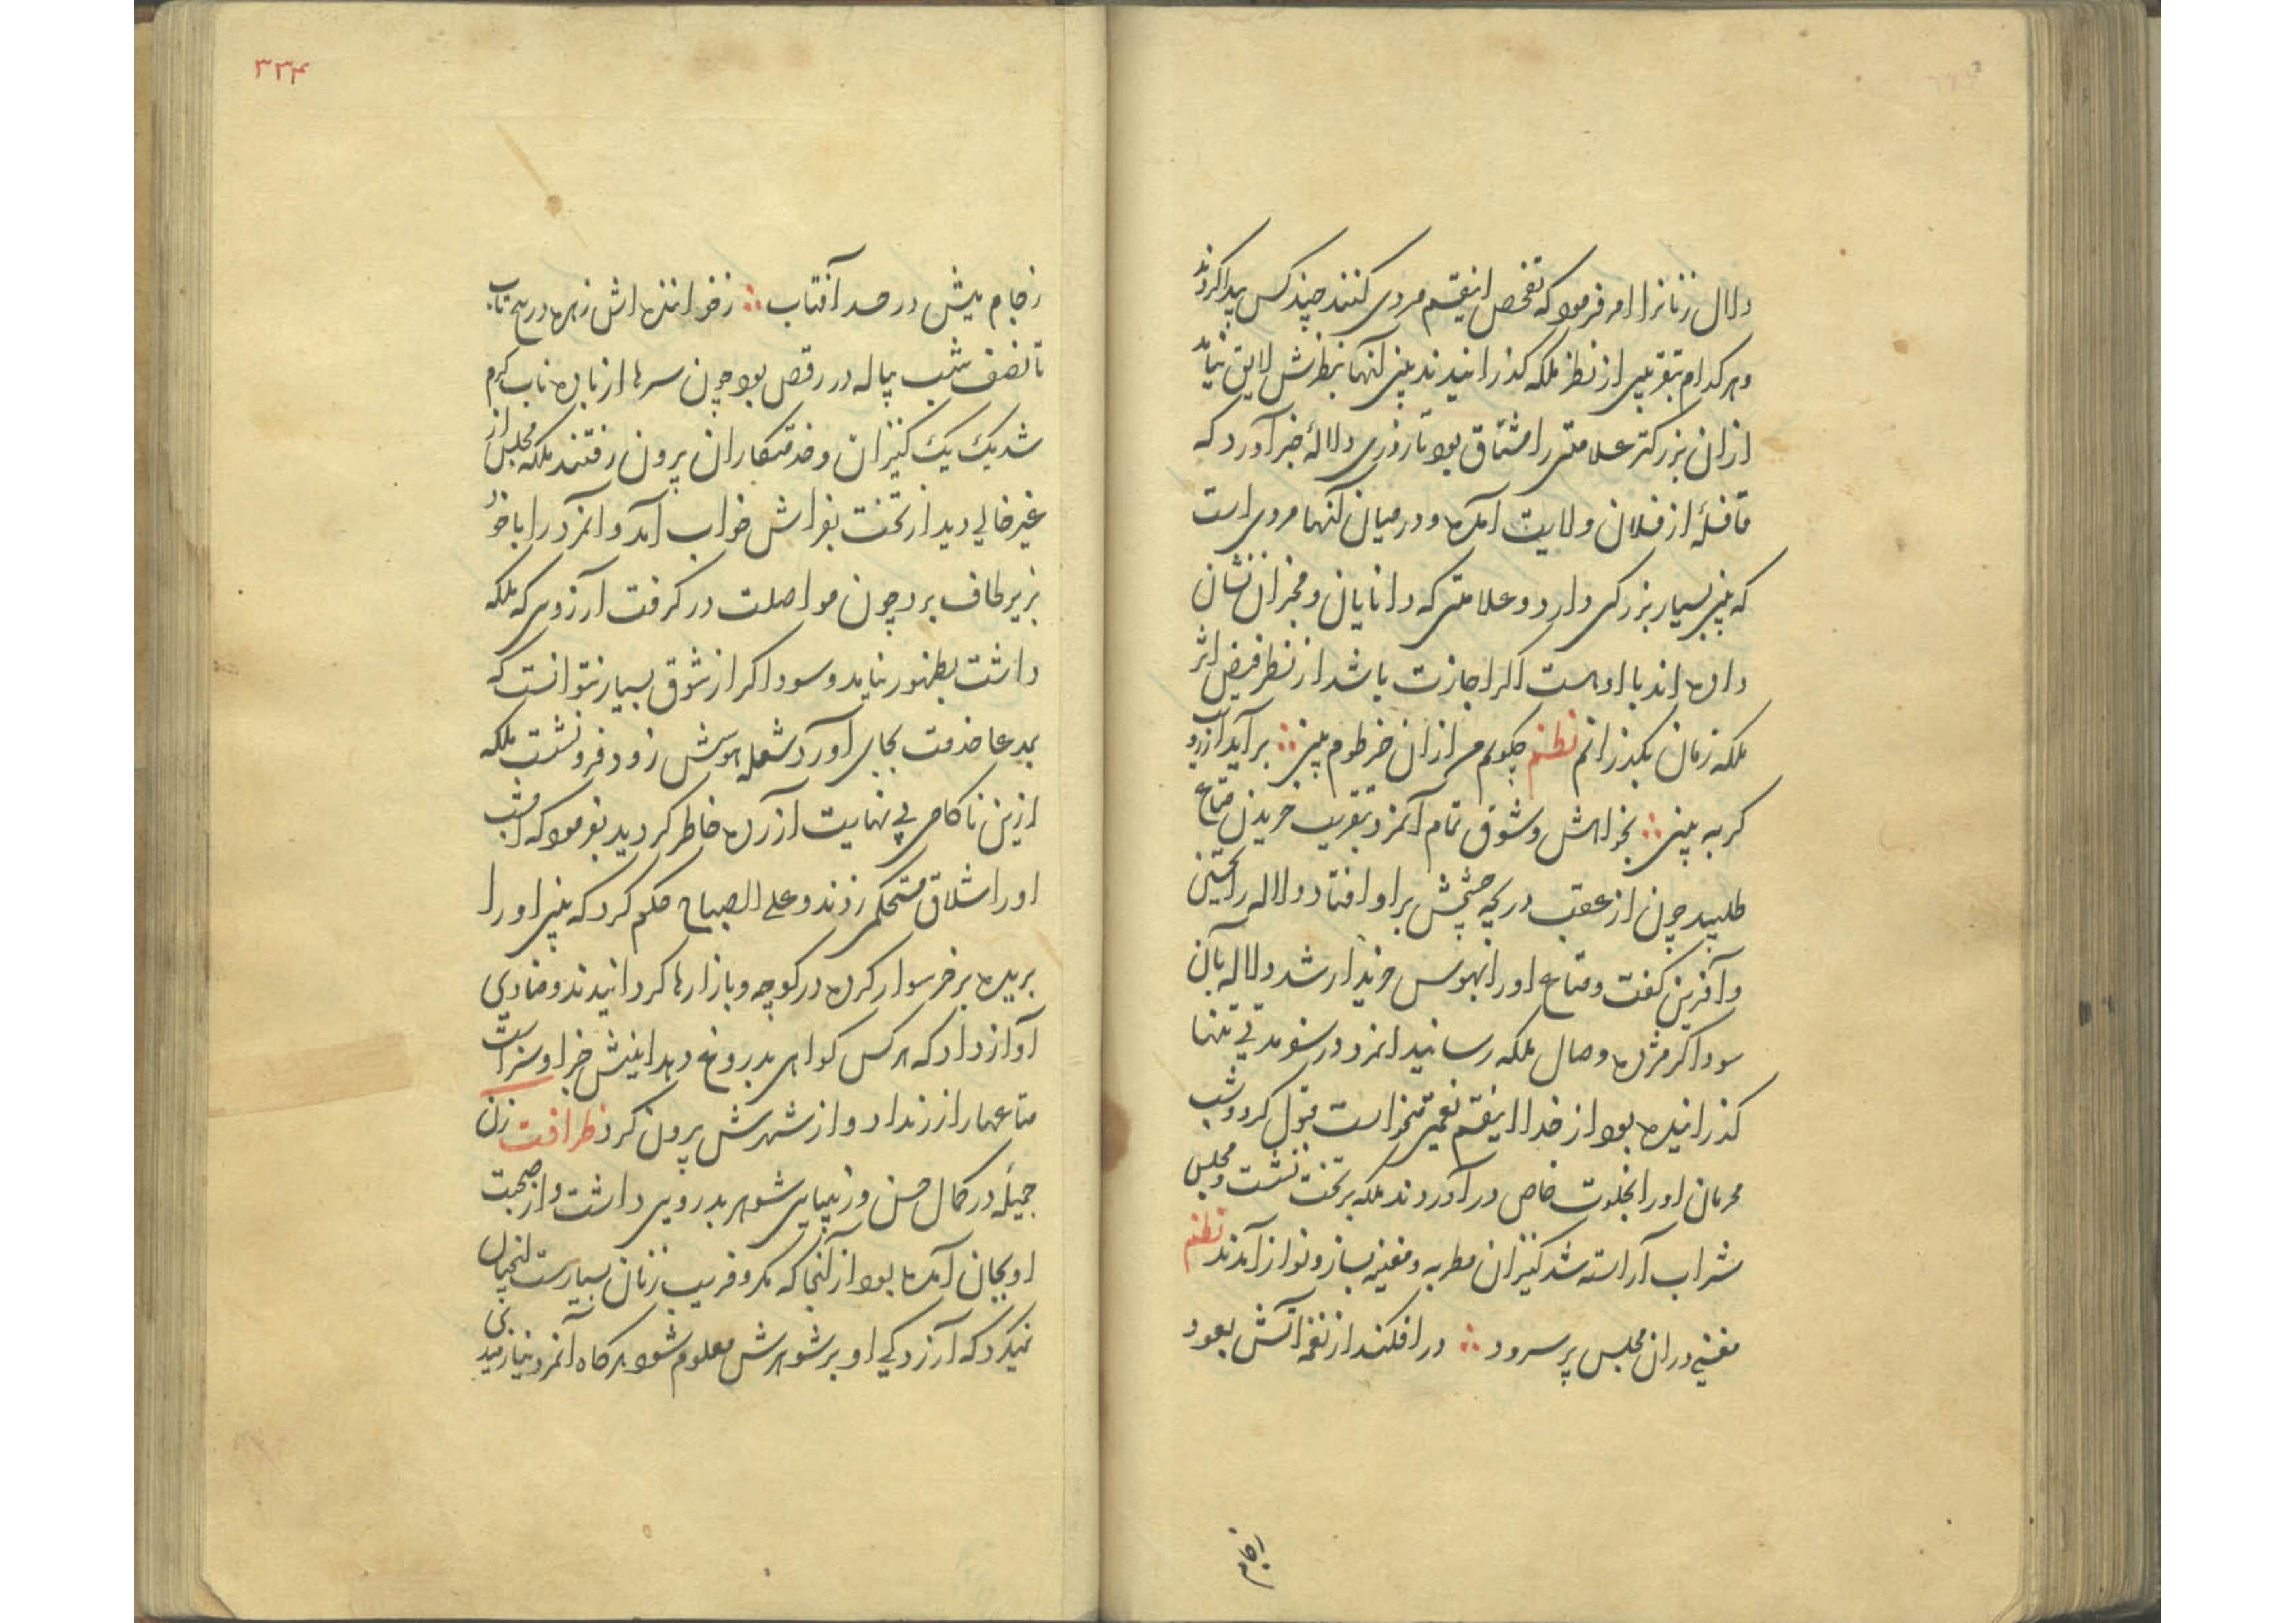 دلال زنانرا امر فرمود که تفحص اینقسم مردی کنند چند کس پیدا کردند
و هر کدام بتقریبی از نظر ملکه گذرانیدند بینی آنها بنظرش لایق نیامد
ازان بزرکتر علامتی را مشتاق بود تا روزی دلالهٔ خبر آورد که
قافلهٔ از فلان ولایت آمده و در میان آنها مردی است
که بینی بسیار بزرکی دارد و علامتی که دانایان و مخبران نشان
داده اند با اوست اکر اجازت باشد از نظر فیض اثر
ملکه زمان بکذرانم نظم چکویم من ازان خرطوم بینی ∴ برآید آرزو
کر به بینی ∴ بخواهش و شوق تمام آنمرد بتقریب خریدن متاع
طلبید چون از عقب دریچه چشمش بر او افتاد دلاله را تحسین
و آفرین کفت و متاع او را بهوس خریدار شد دلاله بآن
سوداکر مژده وصال ملکه رسانید انمرد در سفر مدتی تنها
کذرانیده بود از خدا اینقسم نعمتی میخواست قبول کرد و شب
محرمان او را بخلوت خاص درآوردند ملکه بر تخت نشست و مجلس
شراب آراسته شد کنیزان مطربه و مغنیه بساز و نواز آمدند نظم
مغنی دران مجلس پر سرود ∴ در افکند از نغمه آتش بعود
زجام
۳۳۴
زجام میش در حسد آفتاب ∴ ز خوانندهاش زهره در پیچ تاب
تا نصف شب پیاله در رقص بود چون سرها از باده ناب کرم
شد یک یک کنیزان و خدمتکاران بیرون رفتند ملکه مجلس از
غیر خالی دید از تخت بفراش خواب آمد و انمرد را با خود
بزیر لحاف برد چون مواصلت در کرفت آرزوی که ملکه
داشت بظهور نیامد و سوداکر از شوق بسیار نتوانست که
بمدعا خدمت بجای آورد شعله هوسش زود فرو نشست ملکه
ازین ناکامی بی نهایت آزرده خاطر کردید بفرمود که امشب
او را شلاق مستحکمی زدند و علی الصباح حکم کرد که بینی او را
بریده بر خر سوار کرده در کوچه و بازارها کردانیدند و منادی
آواز داد که هر کس کواهی بدروغ دهد اینش جزا و سزاست
متاعها را زر نداد و از شهرش بیرون کرد ظرافت زن
جمیلهٔ در کمال حسن و زیبایی شوهر بدرویی داشت و از صحبت
او بجان آمده بود از آنجا که مکر و فریب زنان بسیارست آنچنان
نمیکرد که آزردکی او بر شوهرش معلوم شود هرکاه آنمرد نیازمندی